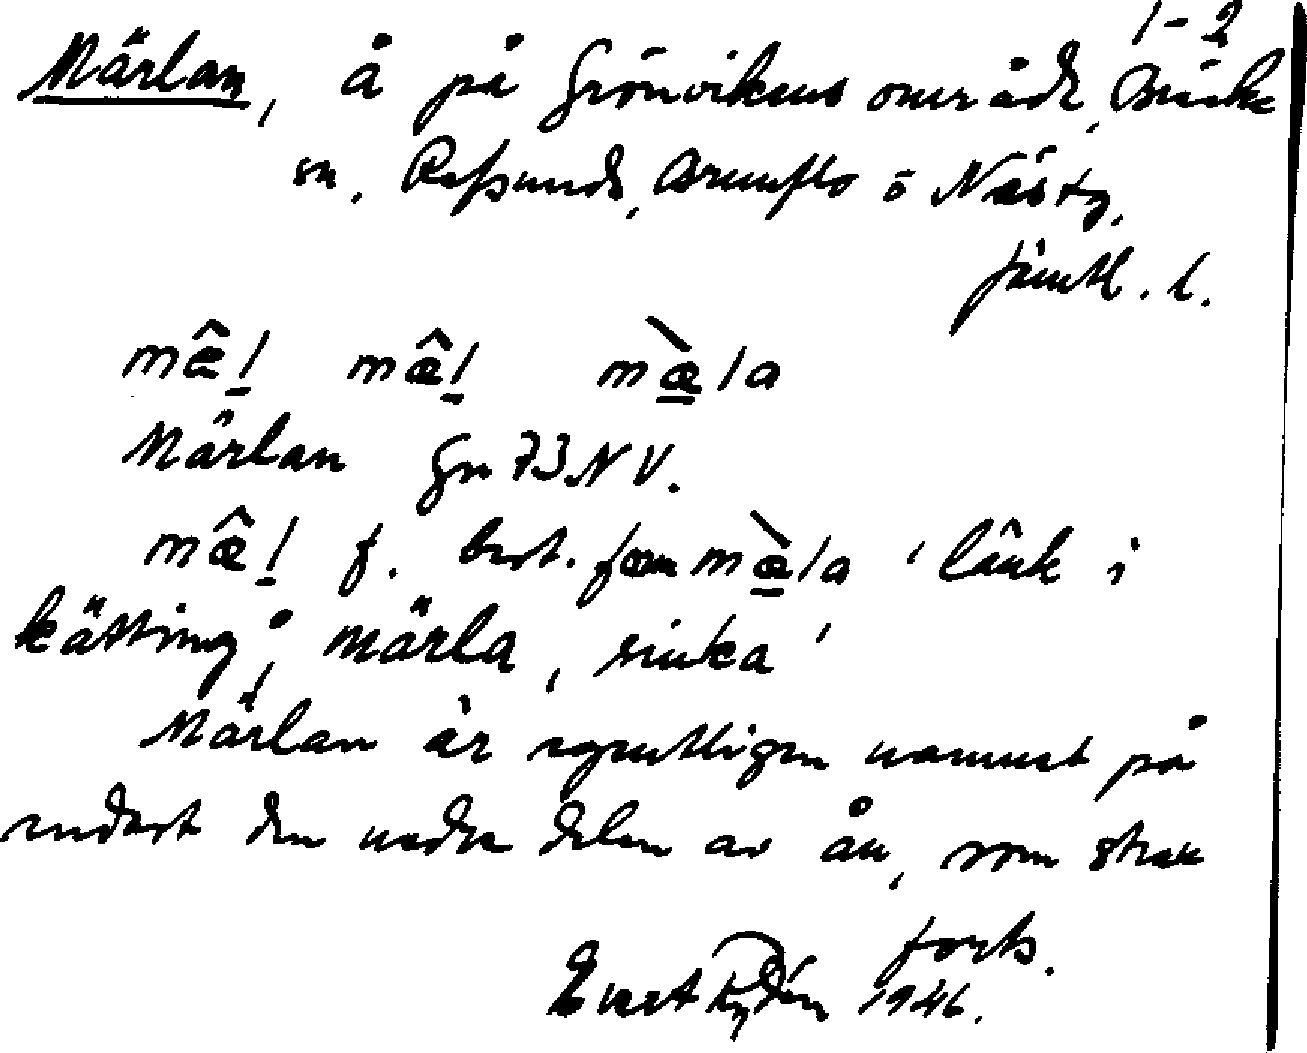 1-2
Märlan, å på Grönvikens område, Bräcke
sn. Refsunds, Brunflo o Näs tg.
Jämtl. l.
mæ̂l̠ mæ̂l̠ mæ̠̀la
Märlan Gn 73 NV.
mæ̂l̠ f. best. form mæ̠̀la 'länk i
kätting; märla, sinka'
Märlan är egentligen namnet på
endast den nedre delen av ån, som strax
forts.
Evert Rydén 1946.